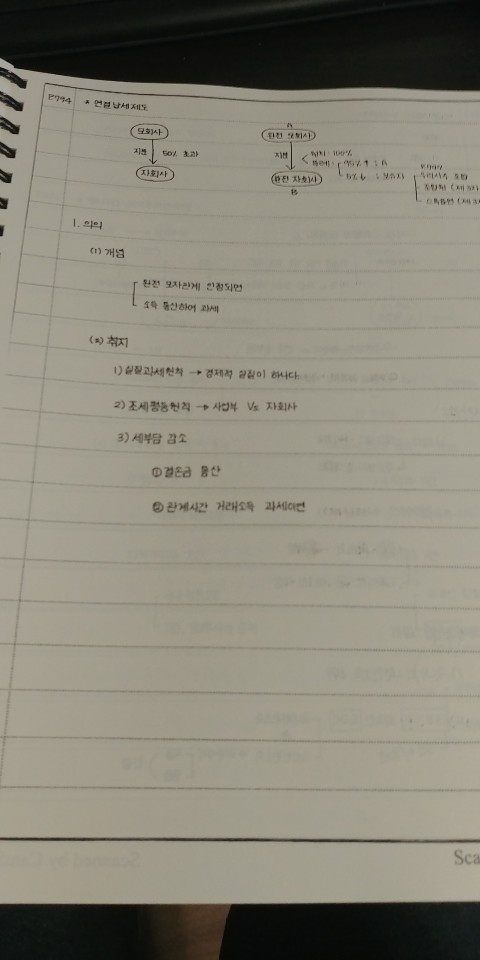 P794
* 연결납세제도
모회사
지분 50% 초과
자회사
A
완전 모회사
지분 원칙 : 100%
95%↑ : A
5%↓ : 우리사주
완전 자회사
B
우리사주 조합
1. 의의
(1) 개념
완전 모자관계 인정되면
소득 통산하여 과세
(2) 취지
1) 실질과세원칙 → 경제적 실질이 하나다
2) 조세평등원칙 → 사업부 Vs 자회사
3) 세부담 감소
① 결손금 통산
② 관계사간 거래소득 과세이연
Sca